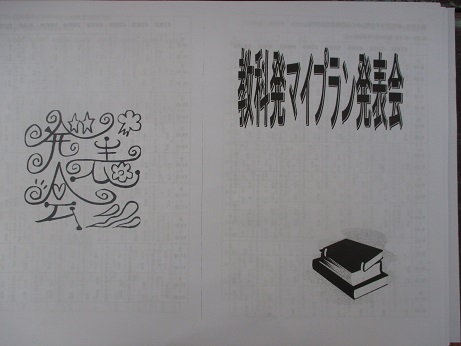 教科発マイプラン発表会
発表会